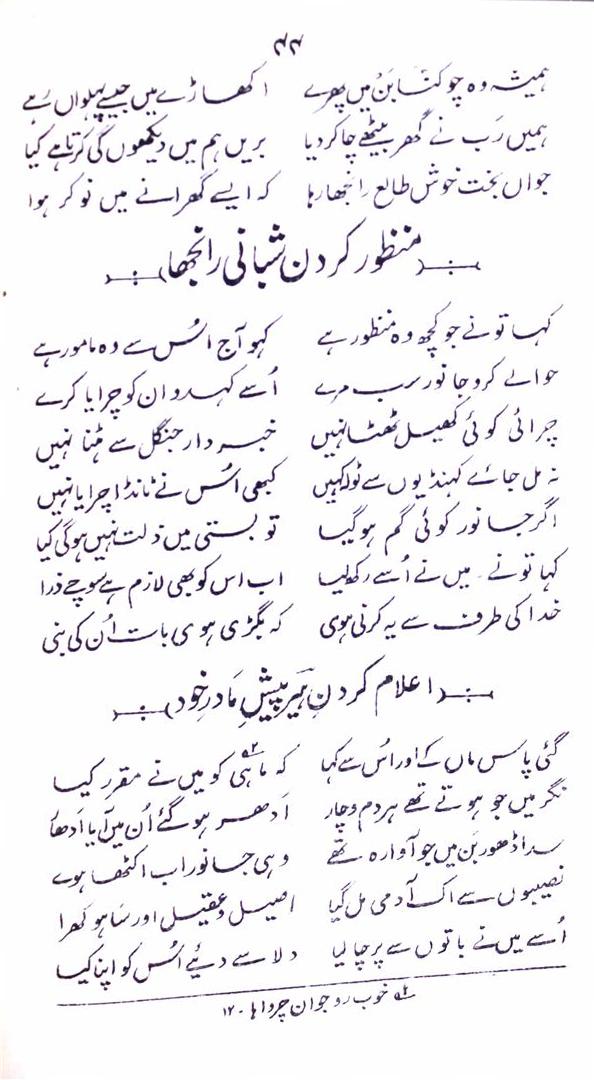 ۴۴
ہمیشہ وہ چوکنا بَن میں پھرے اکھاڑے میں جیسے پہلواں رہے
ہمیں رَب نے گھر بیٹھے چاکر دیا بریں ہم میں دیکھوں گی کرتا ہے کیا
جواں بخت خوش طالع رانجھا رہا کہ ایسے گھرانے میں نوکر ہوا
منظور کردن شبانی رانجھا
کہا تو نے جو کچھ وہ منظور ہے کہو آج اُس سے وہ مامور ہے
حوالے کرو جانور سب مرے اُسے کہدو ان کو چرایا کرے
چرائی کوئی کھیل ٹھٹا نہیں خبردار جنگل سے ہٹنا نہیں
نہ مل جائے کہنڈیوں سے ٹولہ کہیں کبھی اُس نے ٹانڈا چرایا نہیں
اگر جانور کوئی گم ہو گیا تو بستی میں ذلت نہیں ہوگی کیا
کہا تو نے۔ میں نے اُسے رکھ لیا اب اس کو بھی لازم ہے سوچے ذرا
خدا کی طرف سے یہ کرنی ہوی کہ بگڑی ہوی بات اُن کی بنی
اعلام کردنِ ہیر پیشِ مادرِ خود
گئی پاس ماں کے اور اُس سے کہا کہ ماہی کو میں نے مقرر کیا
نگر میں جو ہوتے تھے ہر دم وچار اَدھر ہو گئے اُن میں آیا اَدھار
سدا ڈھور بَن میں جو آوارہ تھے وہی جانور اب اکٹھا ہوے
نصیبوں سے اک آدمی مل گیا اصیل و عقیل اور ساہو کھرا
اُسے میں نے باتوں سے پرچا لیا دلاسے دئیے اُس کو اپنا کیا
خوب رو جوان چرواہا۔ ۱۲